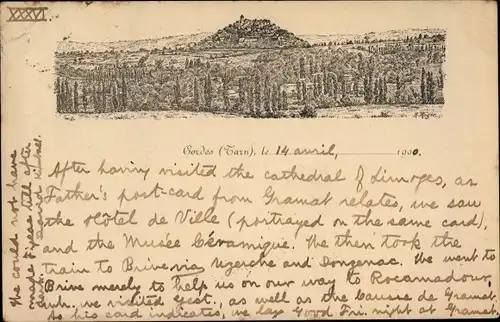 XXXVI.
Cordes (Tarn), le 14 avril, 1900.
After having visited the cathedral of Limoges, as
Father's post-card from Gramat relates, we saw
the Hôtel de Ville (portrayed on the same card),
and the Musée Céramique. We then took the
train to Brive via Uzerche and Donzenac. We went to
Brive merely to help us on our way to Rocamadour,
wh. we visited yest., as well as the Causse de Gramat.
As his card indicates, we lay Good Fri. night at Gramat.
He could not have
till after